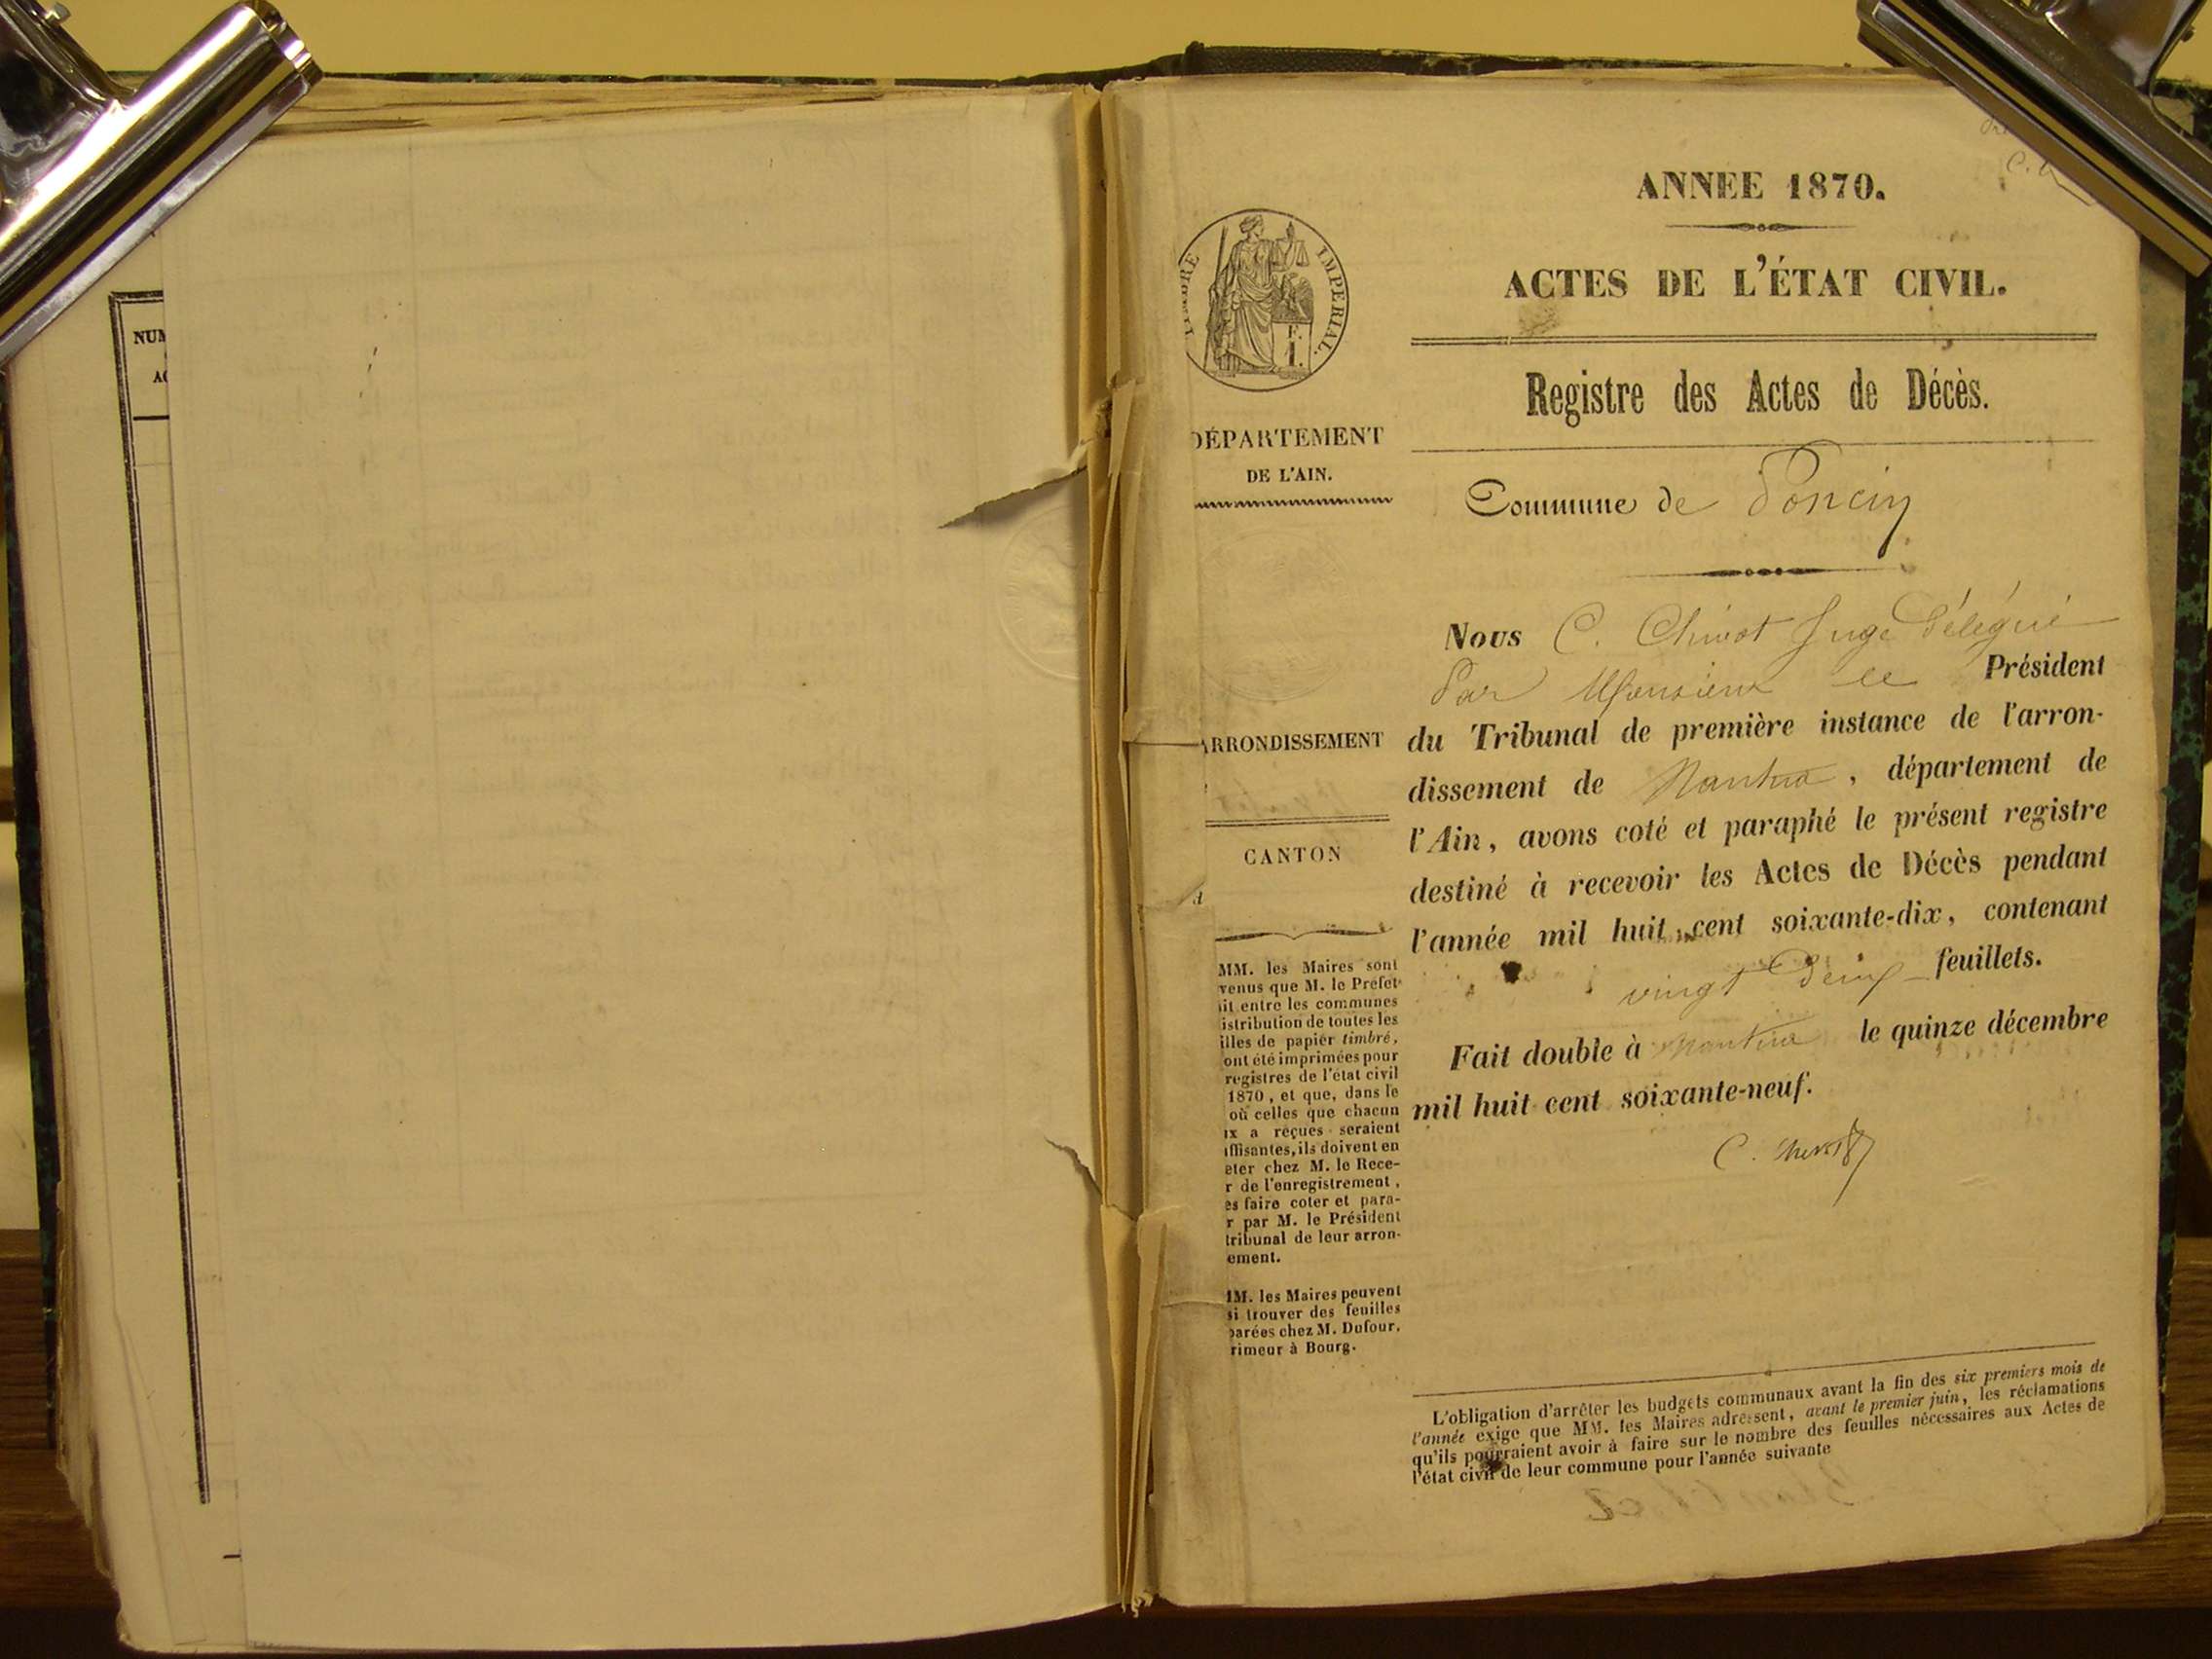 NUM
AC
ANNEE 1870.
ACTES DE L'ÉTAT CIVIL.
Registre des Actes de Décès.
Commune de Poncin
Nous C. Chivot Juge Délégué
Par Monsieur le Président
du Tribunal de première instance de l'arron-
dissement de Nantua, département de
l'Ain, avons coté et paraphé le présent registre
destiné à recevoir les Actes de Décès pendant
l'année mil huit cent soixante-dix, contenant
vingt Deux feuillets.
Fait double à Nantua le quinze décembre
mil huit cent soixante-neuf.
L'obligation d'arrêter les budgets communaux avant la fin des six premiers mois de
l'année exige que MM. les Maires adressent, avant le premier juin, les réclamations
qu'ils pourraient avoir à faire sur le nombre des feuilles nécessaires aux Actes de
l'état civil de leur commune pour l'année suivante
TIMBRE IMPERIAL.
F.
1.
DÉPARTEMENT
DE L'AIN.
ARRONDISSEMENT
CANTON
MM. les Maires sont
venus que M. le Préfet
it entre les communes
istribution de toutes les
illes de papier timbré,
ont été imprimées pour
registres de l'état civil
1870, et que, dans le
où celles que chacun
ux a reçues seraient
ffisantes, ils doivent en
eter chez M. le Rece-
r de l'enregistrement,
es faire coter et para-
r par M. le Président
tribunal de leur arron-
ement.
MM. les Maires peuvent
si trouver des feuilles
parées chez M. Dufour,
rimeur à Bourg.